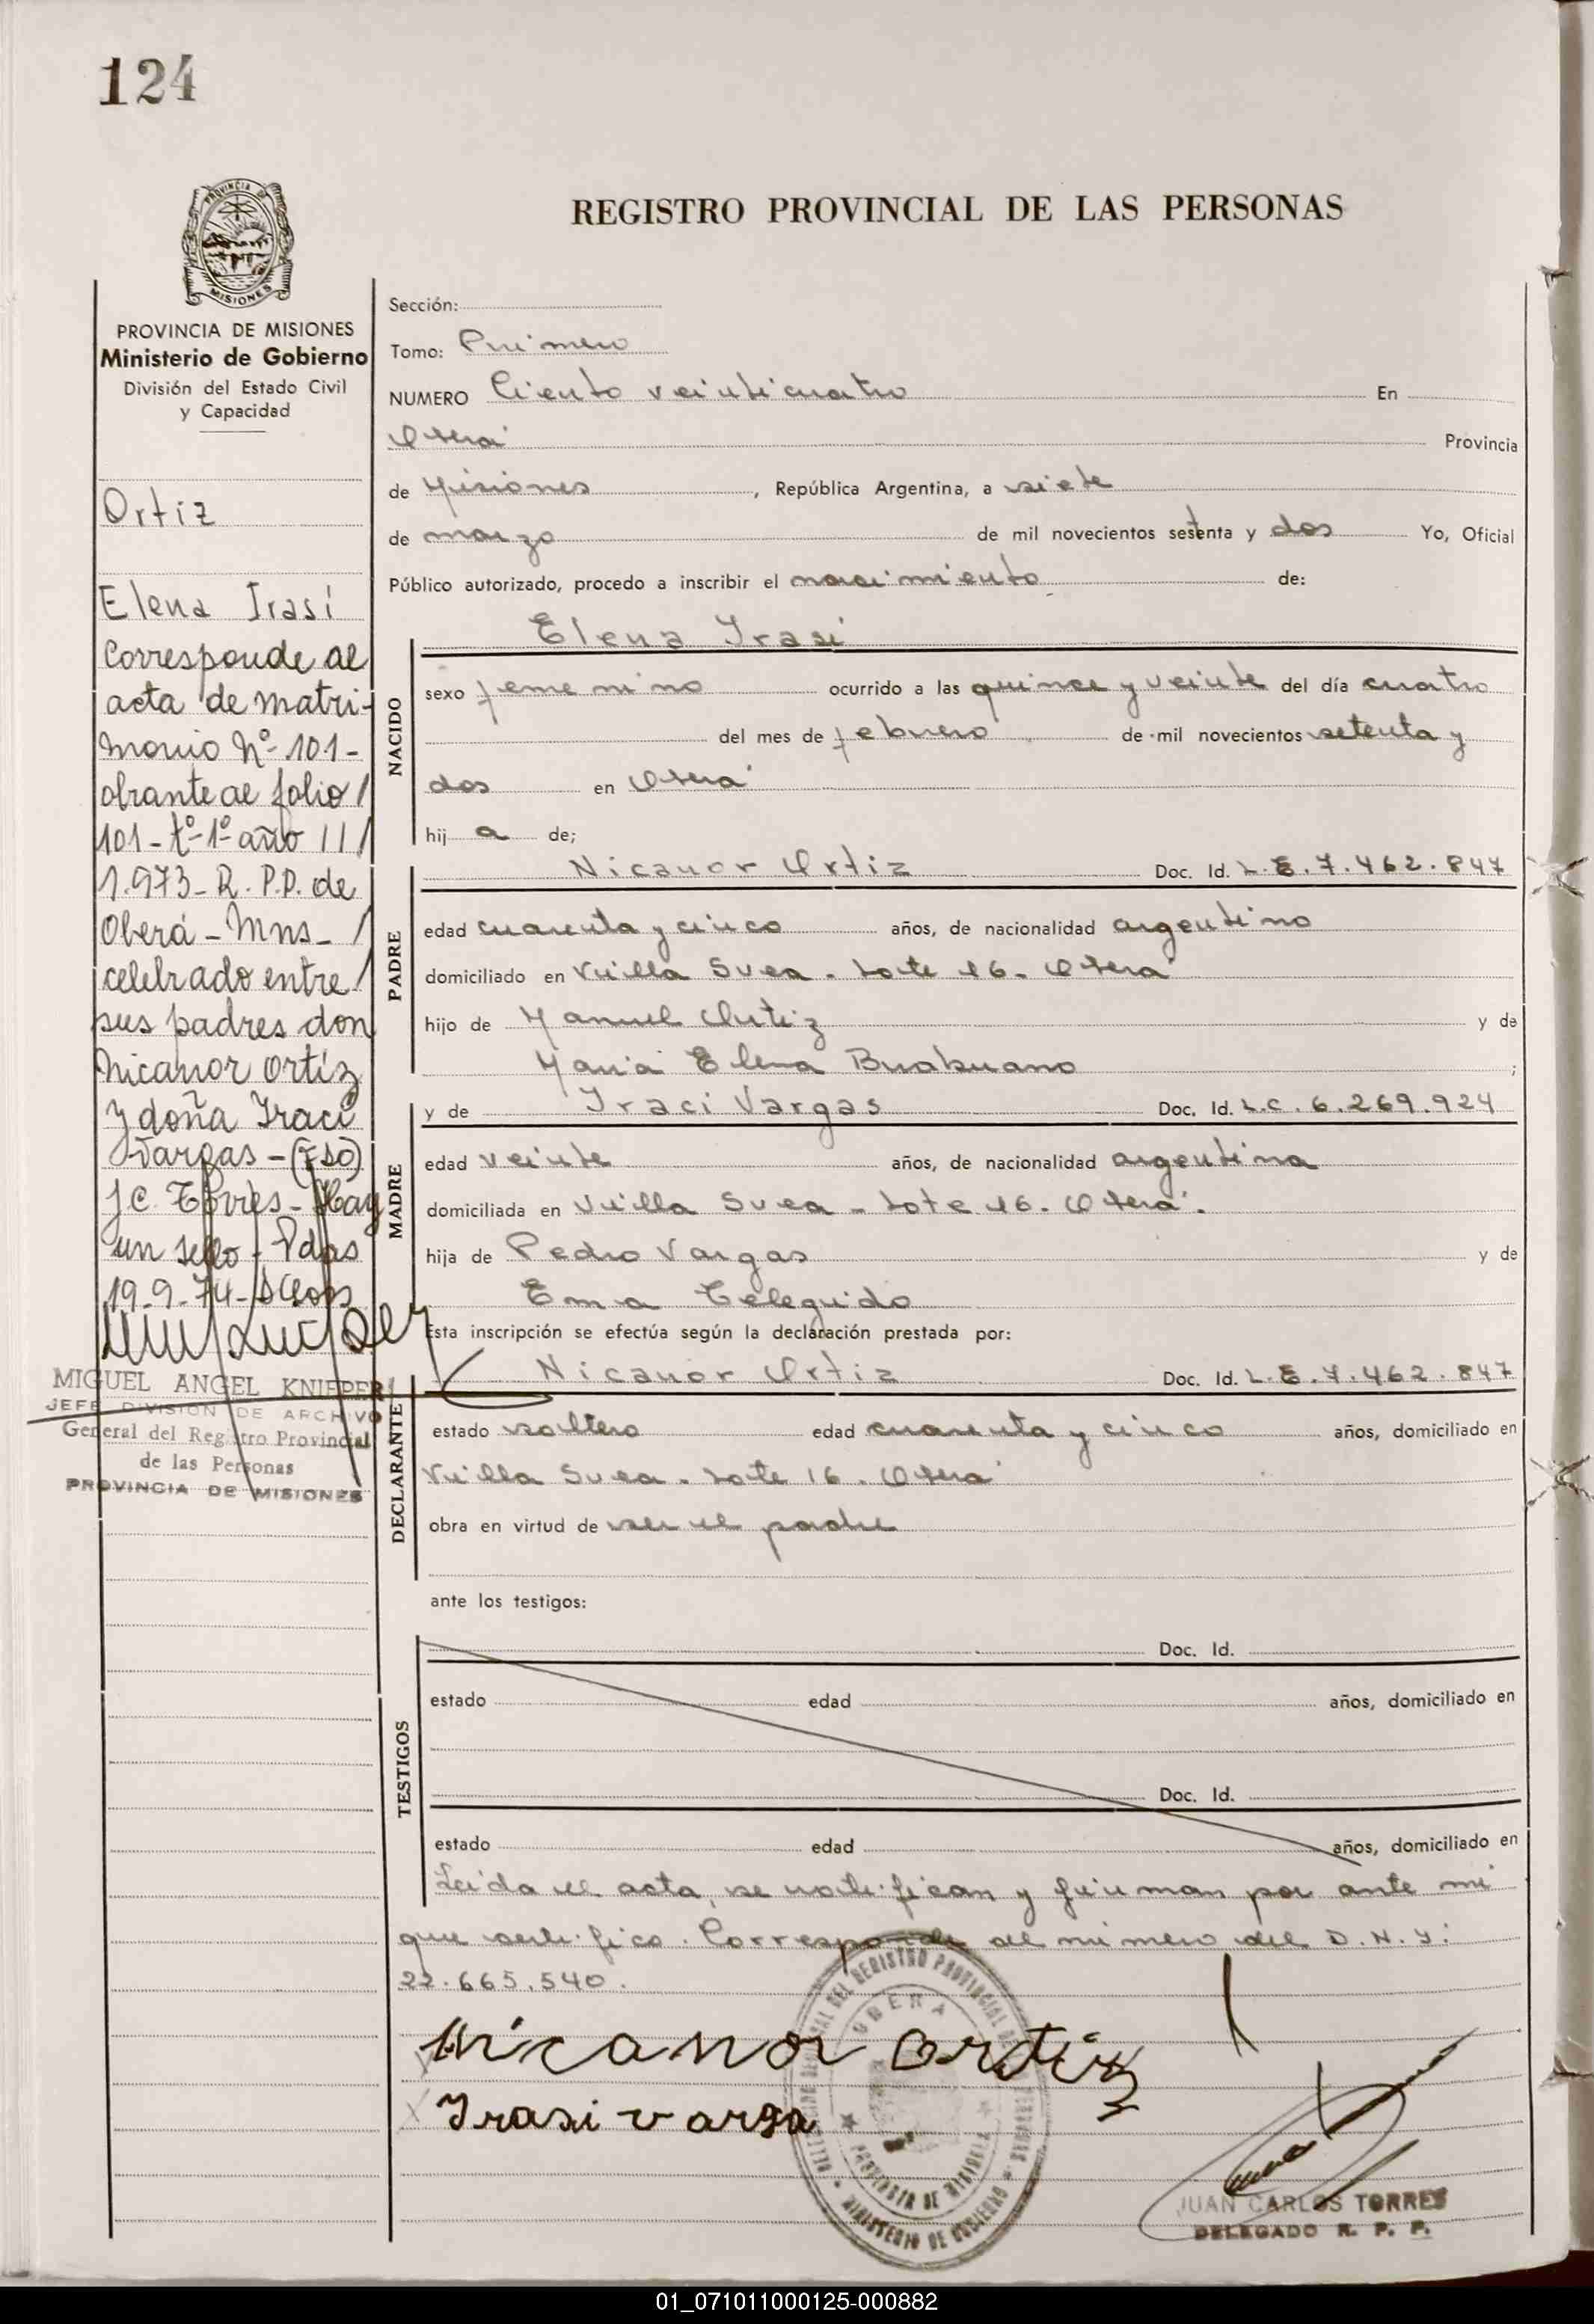 124
PROVINCIA DE MISIONES
REGISTRO PROVINCIAL DE LAS PERSONAS
PROVINCIA DE MISIONES
Ministerio de Gobierno
División del Estado Civil
y Capacidad
Ortiz
Elena Irasí
Corresponde al
acta de matri-
monio Nº 101-
obrante al folio /
101 - tº 1º año ///
1.973 - R. P.P. de
Oberá - Mns - /
celebrado entre /
sus padres don
Nicanor Ortíz
y doña Iraci
Vargas - (Fdo)
J.C. Torres - Hay
un sello - Pdas
19-9-74-
MIGUEL ANGEL KNIEPER
JEFE DIVISION DE ARCHIVO
General del Registro Provincial
de las Personas
PROVINCIA DE MISIONES
Sección:
Tomo: Primero
NUMERO Ciento veinticuatro En
Oberá Provincia
de Misiones, República Argentina, a siete
de marzo de mil novecientos setenta y dos Yo, Oficial
Público autorizado, procedo a inscribir el nacimiento de:
Elena Irasí
NACIDO
sexo femenino ocurrido a las quince y veinte del día cuatro
del mes de febrero de mil novecientos setenta y
dos en Oberá
hij a de;
PADRE
Nicanor Ortiz Doc. Id. L.E. 7.462.847
edad cuarenta y cinco años, de nacionalidad argentino
domiciliado en Villa Svea - Lote 16 - Oberá
hijo de Manuel Ortiz y de
María Elena ;
MADRE
y de Iraci Vargas Doc. Id. L.C. 6.269.924
edad veinte años, de nacionalidad argentina
domiciliada en Villa Svea - Lote 16. Oberá.
hija de Pedro Vargas y de
Ema Celeguido
Esta inscripción se efectúa según la declaración prestada por:
DECLARANTE
Nicanor Ortiz Doc. Id. L.E. 7.462.847
estado soltero edad cuarenta y cinco años, domiciliado en
Villa Svea - Lote 16. Oberá
obra en virtud de ser el padre
ante los testigos:
TESTIGOS
Doc. Id.
estado edad años, domiciliado en
Doc. Id.
estado edad años, domiciliado en
Leída el acta, se notifican y firman por ante mi
que certifico. Corresponde al número del D.N.I:
22.665.540.
Nicanor Ortiz
Irasi varga
OBERA
PROVINCIA DE MISIONES
MINISTERIO DE GOBIERNO
JUAN CARLOS TORRES
DELEGADO R. P. P.
01_071011000125-000882